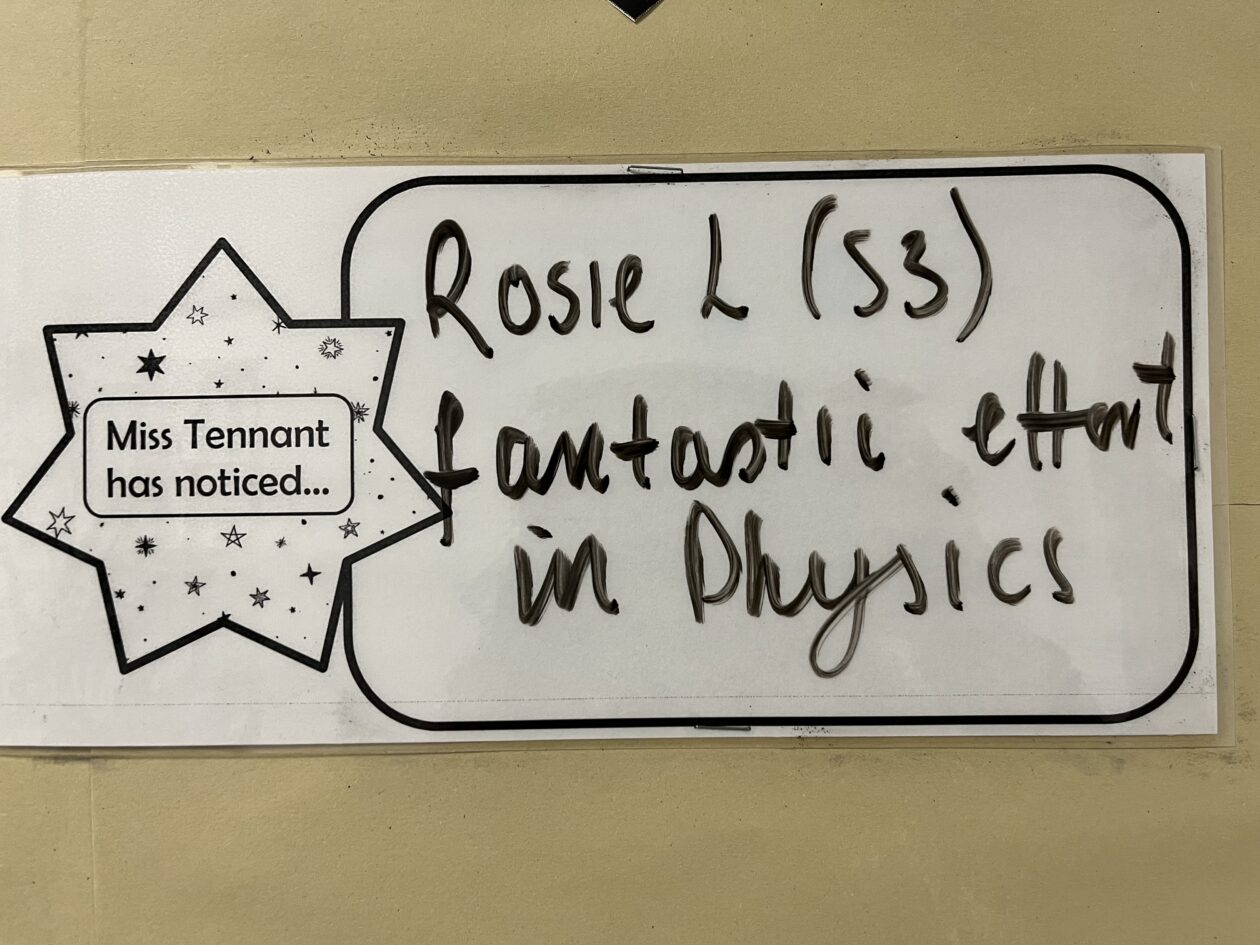 Miss Tennant
has noticed...
Rosie L (S3)
fantastic effort
in Physics